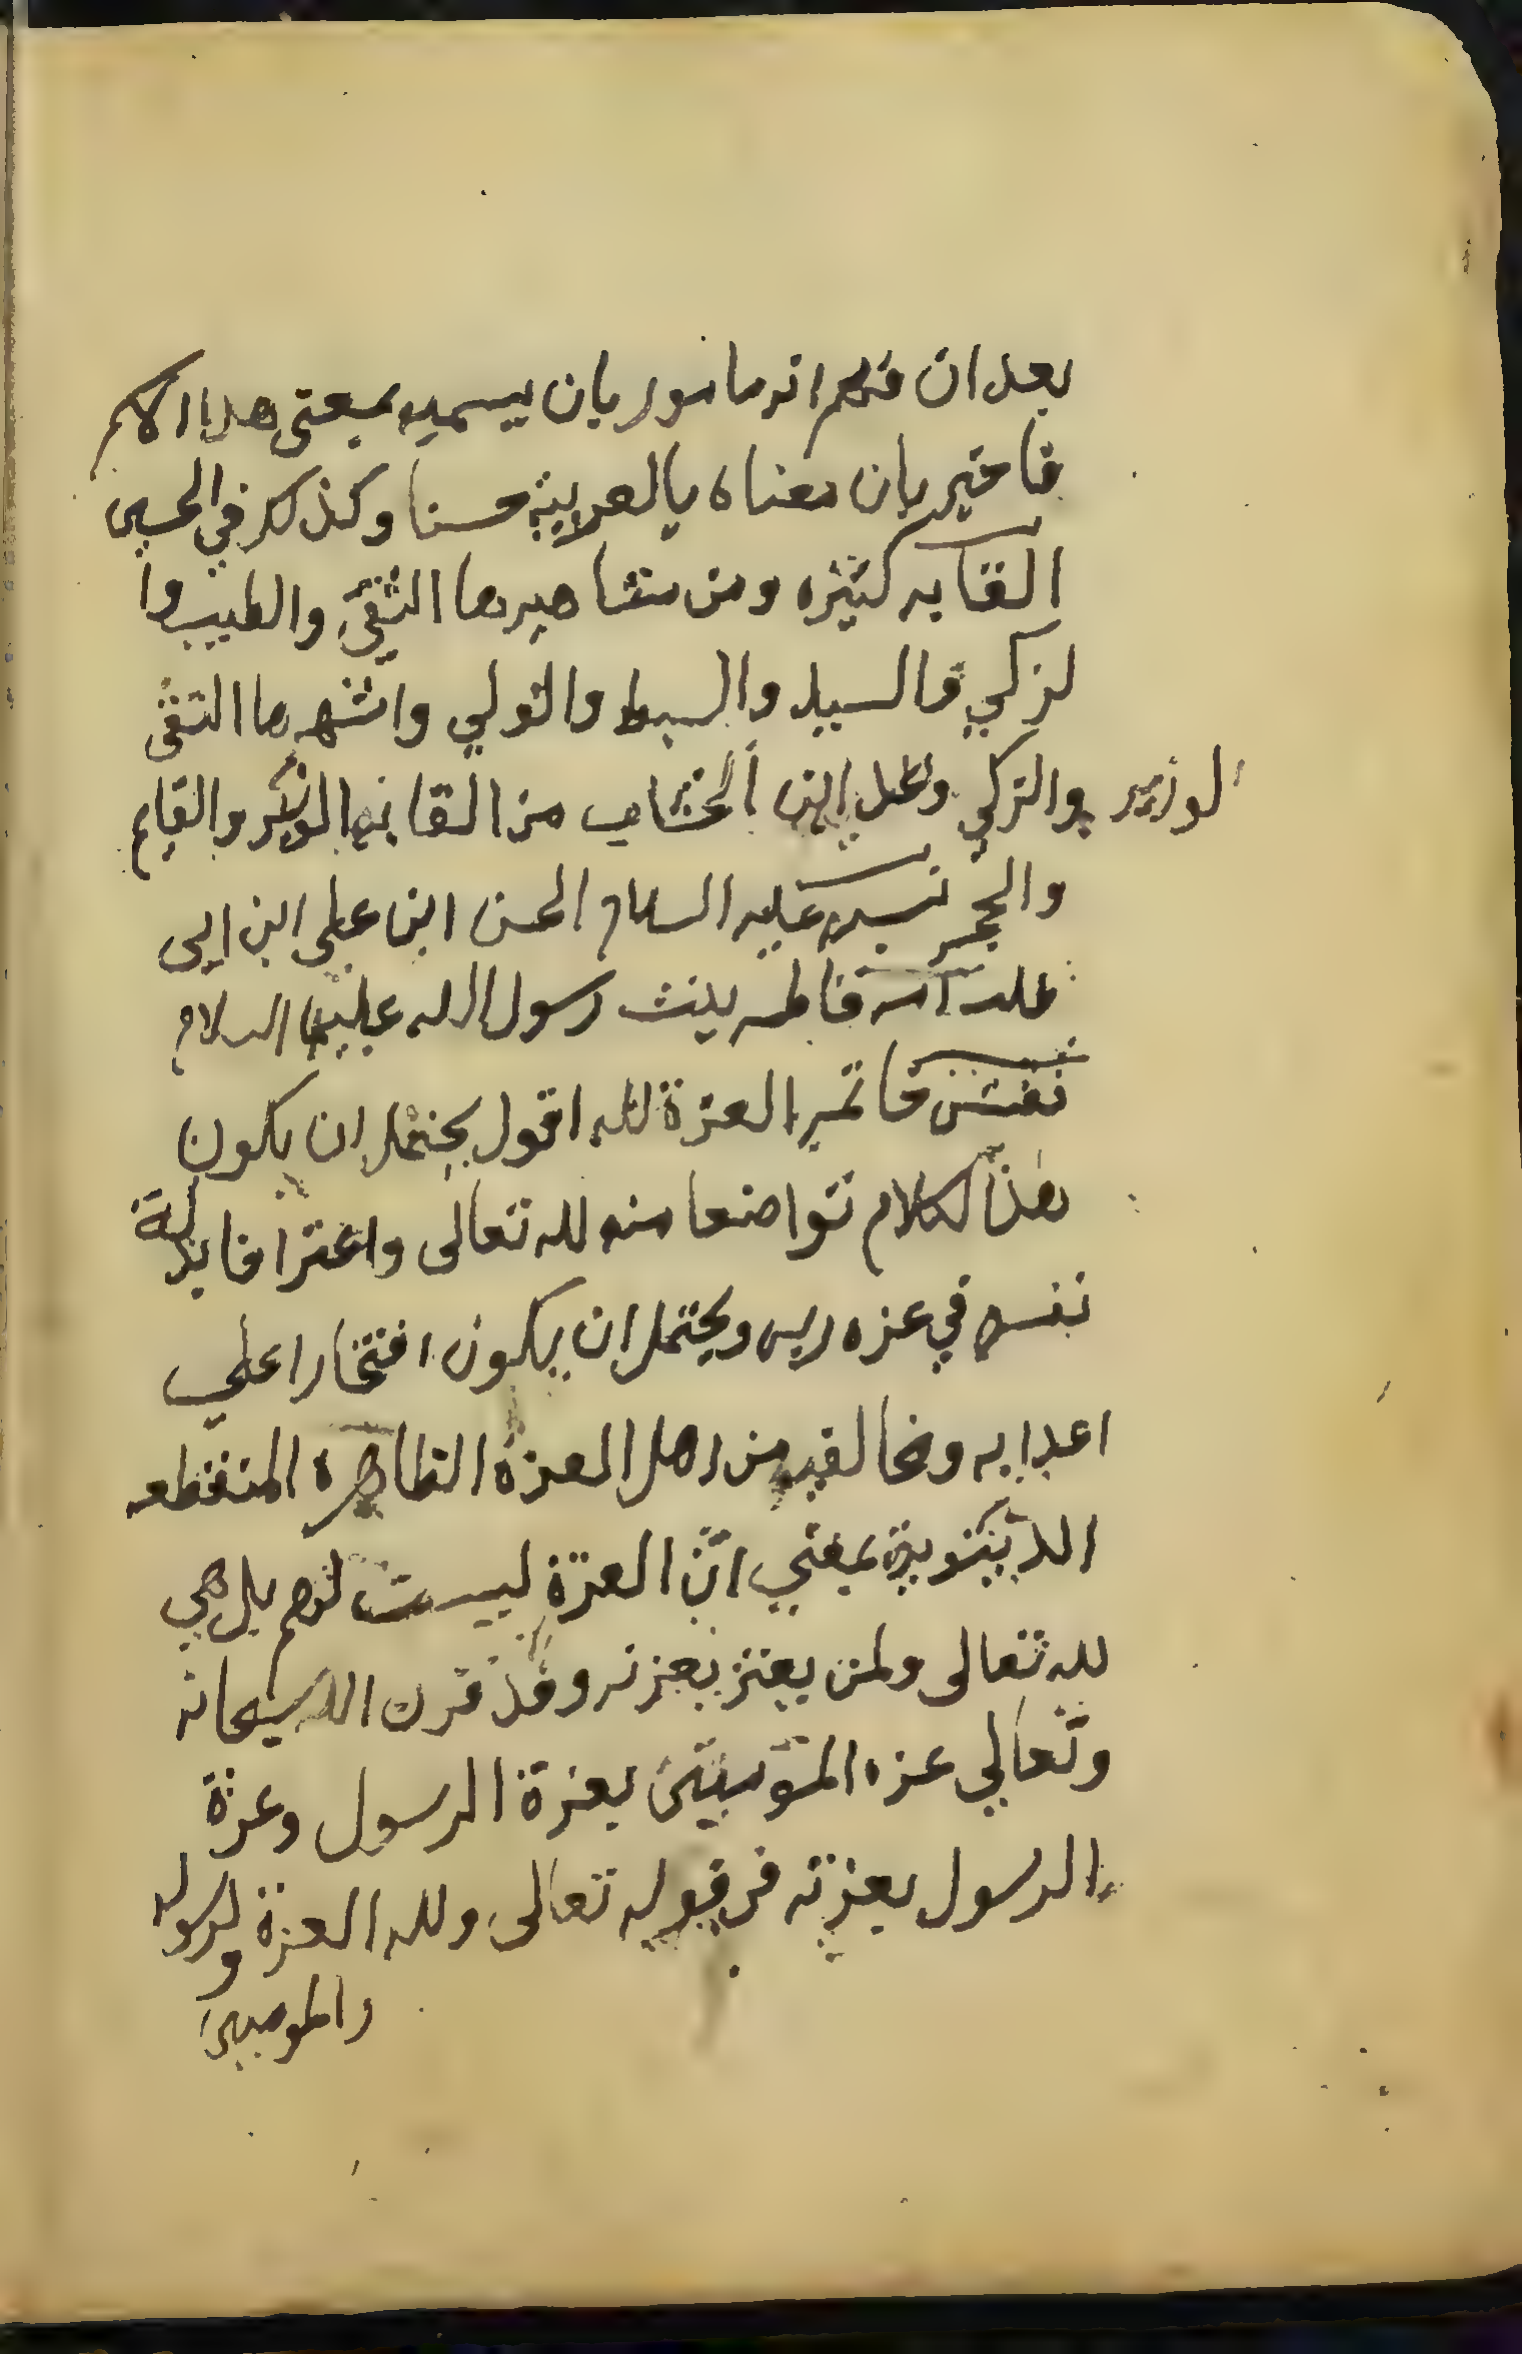 بعد ان فهم انه مامور بان يسميه بمعنى هذا الاسم
فاخبر بان معناه بالعربية حسنا وكذلك في الحسين
القابه كثيره ومن مشاهيرها التقي والطيب وا
لزكي والسيد والسبط والولي واشهرها التقى
والزكي ونقل ابن الخشاب من القابه الوزير والقايم الوزير
والحجر نسبه عليه السلام الحسن ابن علي ابن ابي
طلب امه فاطمه بنت رسول الله عليها السلام
نقش خاتمه العزة لله اقول يحتمل ان يكون
هذا الكلام تواضعا منه لله تعالى واعترافا بذلة
نفسه في عزه ربه ويحتمل ان يكون افتخارا علي
اعدايه ومخالفيه من اهل العزة الظاهرة المنقطعه
الدينوية بمعني انّ العزّة ليست لهم بل هي
لله تعالى ولمن يعتز بعزته وقد قرن الله سبحانه
وتعالي عزه المؤمنين بعزة الرسول وعزة
الرسول بعزته في قوله تعالى ولله العزة ولرسوله
والمومنين